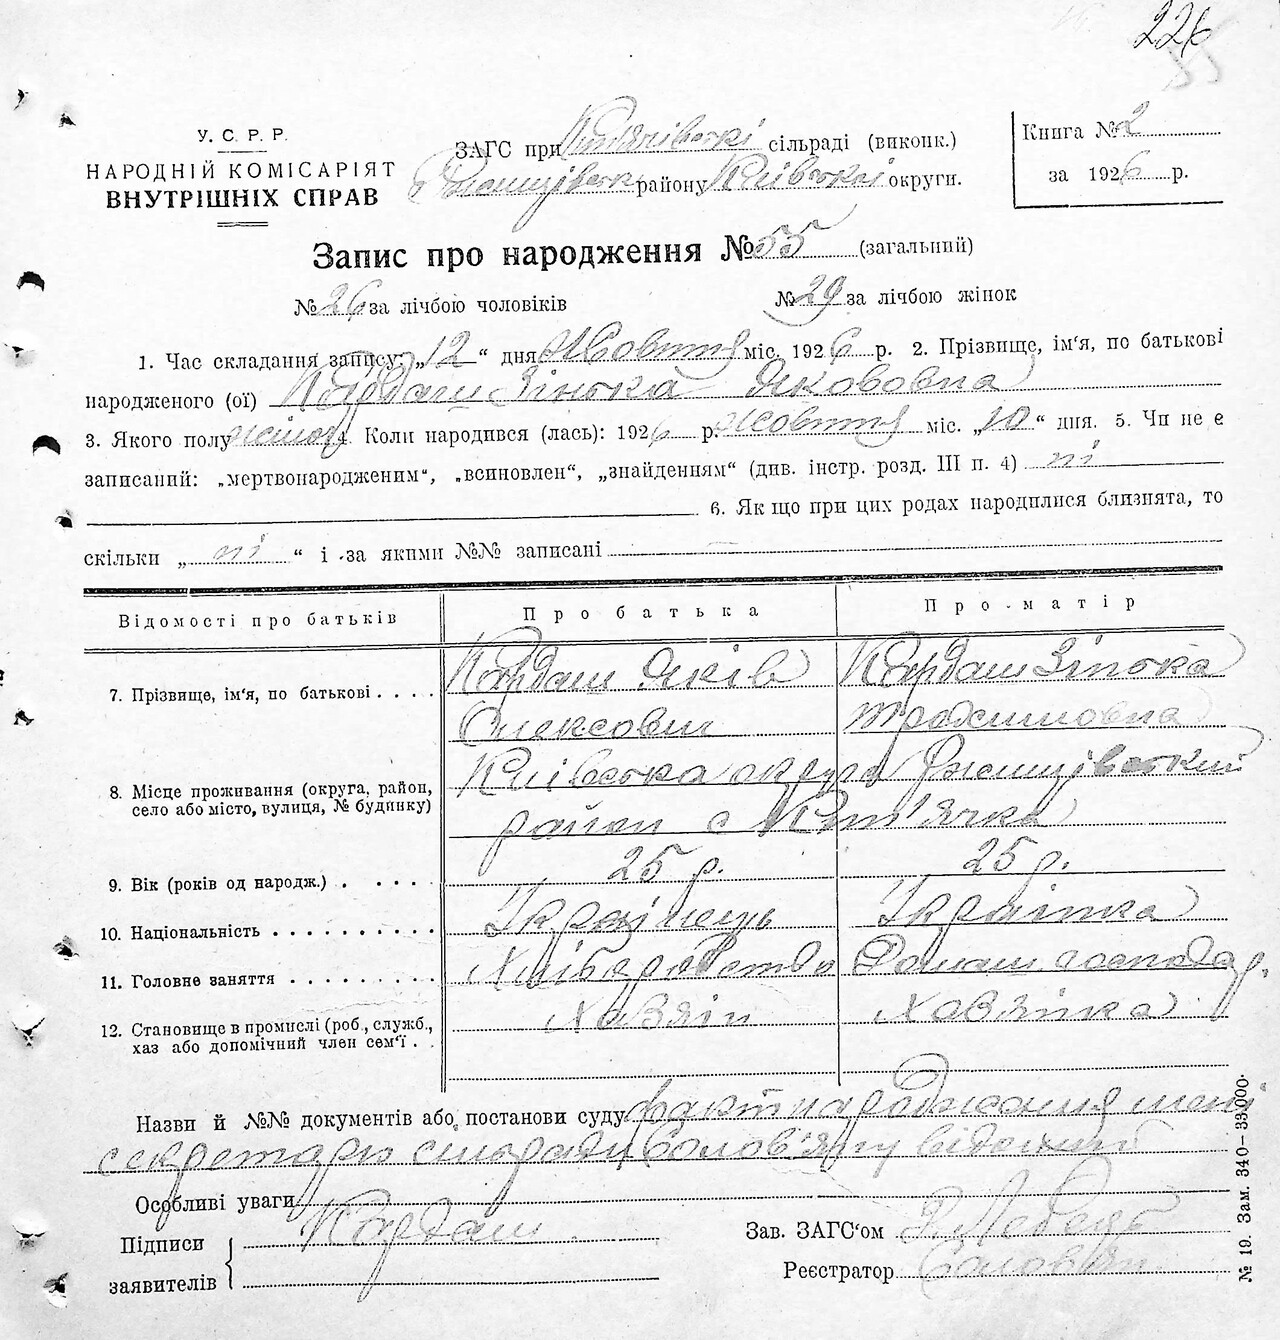 226
55
У. С. Р. Р.
НАРОДНІЙ КОМІСАРІЯТ
ВНУТРІШНІХ СПРАВ
ЗАГС при сільраді (виконк.)
району Київської округи.
Книга № 2
за 1926 р.
Запис про народження № 55 (загальний)
№ 26 за лічбою чоловіків № 29 за лічбою жінок
1. Час складання запису: „12“ дня Жовтня міс. 1926 р. 2. Прізвище, ім'я, по батькові
народженого (ої) Кардаш Зінька Якововна
3. Якого полу жіноч 4. Коли народився (лась): 1926 р. Жовтня міс. „10“ дня. 5. Чи не є
записаний: „мертвонародженим“, „всиновлен“, „знайденням“ (див. інстр. розд. III п. 4) ні
6. Як що при цих родах народилися близнята, то
скільки „ні“ і за якими №№ записані —
Відомості про батьків Про батька Про матір
7. Прізвище, ім'я, по батькові . . . . Кардаш Яків Кардаш Зінька
Олексович Трохимовна
8. Місце проживання (округа, район, село або місто, вулиця, № будинку) Київська округа Ржищівський
район с Кип'ячка
9. Вік (років од народж.) . . . . . 25 р. 25 р.
10. Національність . . . . . . . . . . Українець Українка
11. Головне заняття . . . . . . . . . Хліборобство Домаш. господар.
12. Становище в промислі (роб., служб., хаз або допомічний член сем'ї . . Хазяїн Хазяйка
Назви й №№ документів або постанови суду факт народження мені
секретарю сільради Солов'яну відомий
Особливі уваги
Підписи
заявителів
Кардаш
Зав. ЗАГС'ом Лебедь
Реєстратор Солов'ян
№ 19. Зам. 340—33.000.